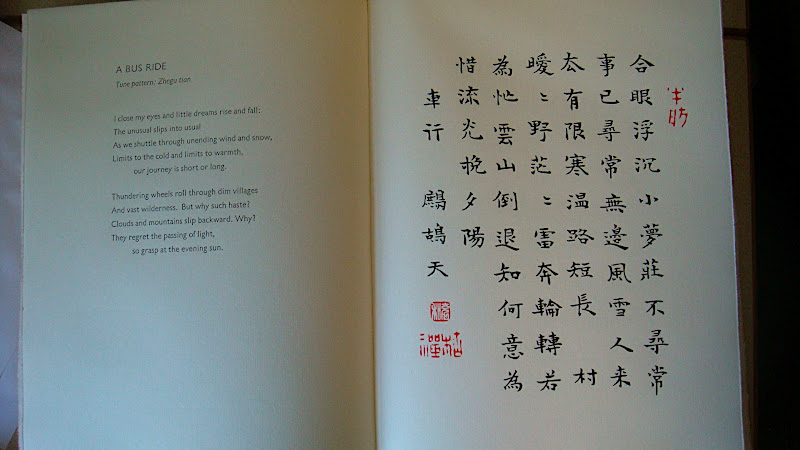 A BUS RIDE
Tune pattern: Zhegu tian
I close my eyes and little dreams rise and fall;
The unusual slips into usual
As we shuttle through unending wind and snow,
Limits to the cold and limits to warmth,
our journey is short or long.
Thundering wheels roll through dim villages
And vast wilderness. But why such haste?
Clouds and mountains slip backward. Why?
They regret the passing of light,
so grasp at the evening sun.
合眼浮沉小夢莊不尋常
事已尋常無邊風雪人来
厺有限寒温路短長 村
曖〻野茫〻雷奔輪轉若
為忙雲山倒退知何意為
惜流光挽夕陽
車行 鷓鴣天